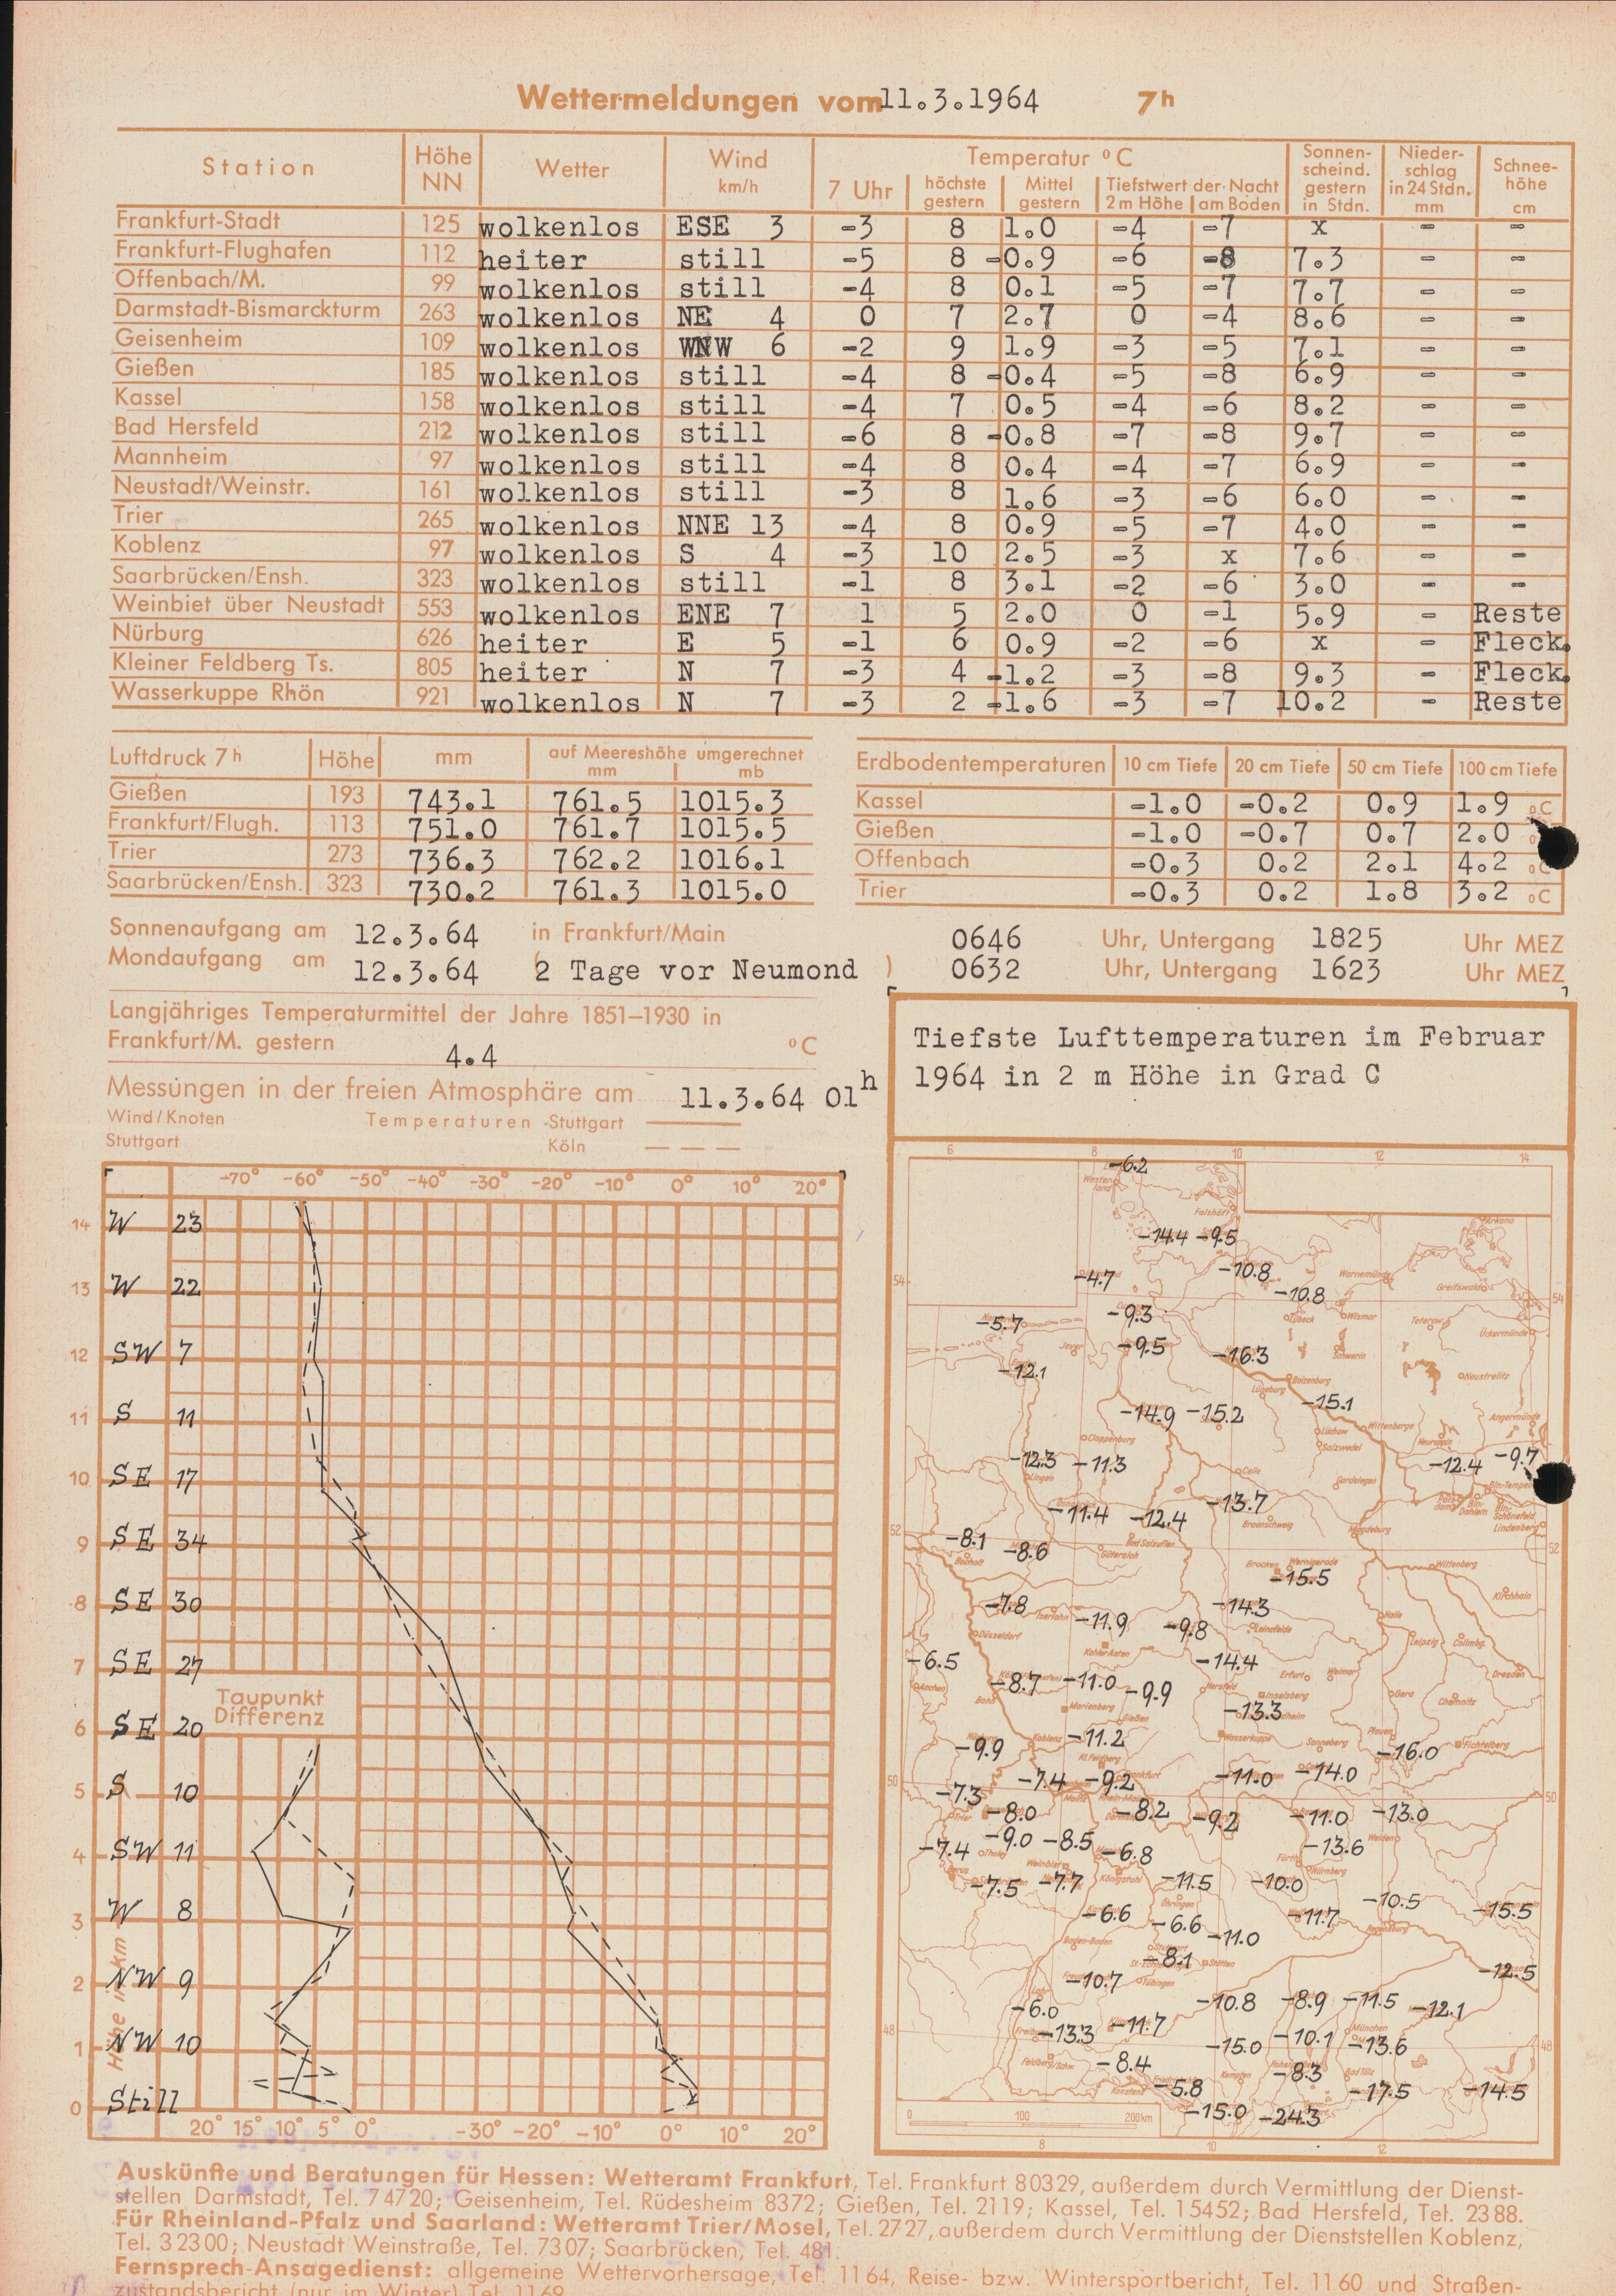 Wettermeldungen vom 11.3.1964 7h
Station Höhe NN Wetter Wind km/h Temperatur °C Sonnenscheind. gestern in Stdn. Niederschlag in 24 Stdn. mm Schneehöhe cm
7 Uhr höchste gestern Mittel gestern Tiefstwert der Nacht 2 m Höhe am Boden
Frankfurt-Stadt 125 wolkenlos ESE 3 -3 8 1.0 -4 -7 x - -
Frankfurt-Flughafen 112 heiter still -5 8 -0.9 -6 -8 7.3 - -
Offenbach/M. 99 wolkenlos still -4 8 0.1 -5 -7 7.7 - -
Darmstadt-Bismarckturm 263 wolkenlos NE 4 0 7 2.7 0 -4 8.6 - -
Geisenheim 109 wolkenlos WNW 6 -2 9 1.9 -3 -5 7.1 - -
Gießen 185 wolkenlos still -4 8 -0.4 -5 -8 6.9 - -
Kassel 158 wolkenlos still -4 7 0.5 -4 -6 8.2 - -
Bad Hersfeld 212 wolkenlos still -6 8 -0.8 -7 -8 9.7 - -
Mannheim 97 wolkenlos still -4 8 0.4 -4 -7 6.9 - -
Neustadt/Weinstr. 161 wolkenlos still -3 8 1.6 -3 -6 6.0 - -
Trier 265 wolkenlos NNE 13 -4 8 0.9 -5 -7 4.0 - -
Koblenz 97 wolkenlos S 4 -3 10 2.5 -3 x 7.6 - -
Saarbrücken/Ensh. 323 wolkenlos still -1 8 3.1 -2 -6 3.0 - -
Weinbiet über Neustadt 553 wolkenlos ENE 7 1 5 2.0 0 -1 5.9 - Reste
Nürburg 626 heiter E 5 -1 6 0.9 -2 -6 x - Fleck.
Kleiner Feldberg Ts. 805 heiter N 7 -3 4 -1.2 -3 -8 9.3 - Fleck.
Wasserkuppe Rhön 921 wolkenlos N 7 -3 2 -1.6 -3 -7 10.2 - Reste
Luftdruck 7h Höhe mm auf Meereshöhe umgerechnet mm mb
Gießen 193 743.1 761.5 1015.3
Frankfurt/Flugh. 113 751.0 761.7 1015.5
Trier 273 736.3 762.2 1016.1
Saarbrücken/Ensh. 323 730.2 761.3 1015.0
Erdbodentemperaturen 10 cm Tiefe 20 cm Tiefe 50 cm Tiefe 100 cm Tiefe
Kassel -1.0 -0.2 0.9 1.9 °C
Gießen -1.0 -0.7 0.7 2.0
Offenbach -0.3 0.2 2.1 4.2 °C
Trier -0.3 0.2 1.8 3.2 °C
Sonnenaufgang am 12.3.64 in Frankfurt/Main 0646 Uhr, Untergang 1825 Uhr MEZ
Mondaufgang am 12.3.64 (2 Tage vor Neumond ) 0632 Uhr, Untergang 1623 Uhr MEZ
Langjähriges Temperaturmittel der Jahre 1851–1930 in
Frankfurt/M. gestern 4.4 °C
Messungen in der freien Atmosphäre am 11.3.64 01h
Wind/Knoten Temperaturen -Stuttgart
Stuttgart Köln
-70° -60° -50° -40° -30° -20° -10° 0° 10° 20°
14 W 23
13 W 22
12 SW 7
11 S 11
10 SE 17
9 SE 34
8 SE 30
7 SE 27
Taupunkt
Differenz
6 SE 20
5 S 10
4 SW 11
3 W 8
2 NW 9
1 NW 10
0 Still
Höhe in km
20° 15° 10° 5° 0° -30° -20° -10° 0° 10° 20°
Tiefste Lufttemperaturen im Februar
1964 in 2 m Höhe in Grad C
6 8 10 12 14
-6.2
-14.4 -9.5
-4.7 -10.8
-10.8
-9.3
-5.7
-9.5 -16.3
-12.1
-15.1
-14.9 -15.2
-12.3 -11.3 -12.4 -9.7
-11.4 -12.4 -13.7
-8.1 -8.6
-15.5
-7.8 -11.9 -9.8 -14.3
-6.5 -14.4
-8.7 -11.0 -9.9
-13.3
-9.9 -11.2 -16.0
-7.4 -9.2 -11.0 -14.0
-7.3 -8.0 -8.2 -9.2 -11.0 -13.0
-7.4 -9.0 -8.5 -6.8 -13.6
-7.5 -7.7 -11.5 -10.0
-6.6 -6.6 -11.0 -11.7 -10.5 -15.5
-8.1
-10.7 -12.5
-6.0 -10.8 -8.9 -11.5 -12.1
-13.3 -11.7 -15.0 -10.1 -13.6
-8.4 -8.3
-5.8 -17.5 -14.5
-15.0 -24.3
0 100 200km
8 10 12
Auskünfte und Beratungen für Hessen: Wetteramt Frankfurt, Tel. Frankfurt 80329, außerdem durch Vermittlung der Dienst-
stellen Darmstadt, Tel. 74720; Geisenheim, Tel. Rüdesheim 8372; Gießen, Tel. 2119; Kassel, Tel. 15452; Bad Hersfeld, Tel. 2388.
Für Rheinland-Pfalz und Saarland: Wetteramt Trier/Mosel, Tel. 2727, außerdem durch Vermittlung der Dienststellen Koblenz,
Tel. 32300; Neustadt Weinstraße, Tel. 7307; Saarbrücken, Tel. 481.
Fernsprech-Ansagedienst: allgemeine Wettervorhersage, Tel. 1164, Reise- bzw. Wintersportbericht, Tel. 1160 und Straßen-
zustandsbericht (nur im Winter) Tel. 1169